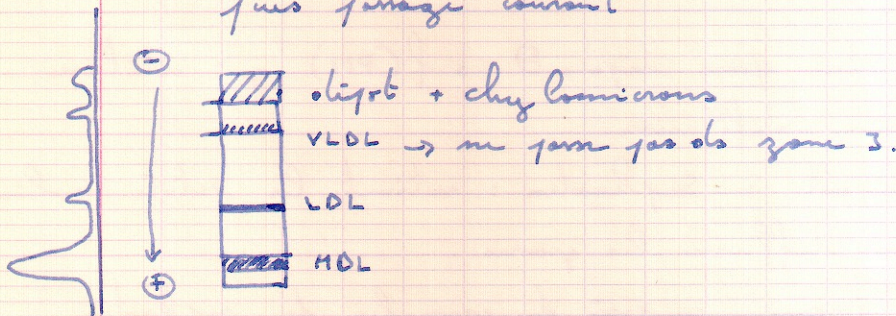 puis passage courant
⊖
dépôt + chylomicrons
VLDL → ne passe pas ds zone 3.
LDL
HDL
⊕